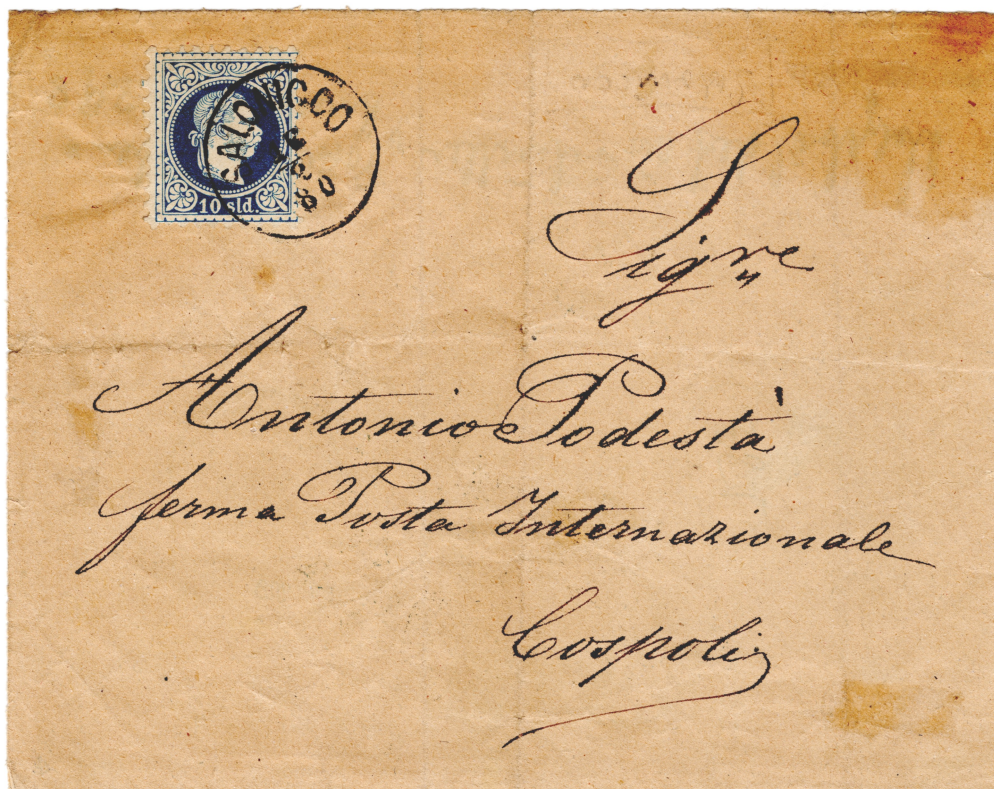 SALONICCO
80
10 sld.
Sigre
Antonio Podestà
ferma Posta Internazionale
Cospoli